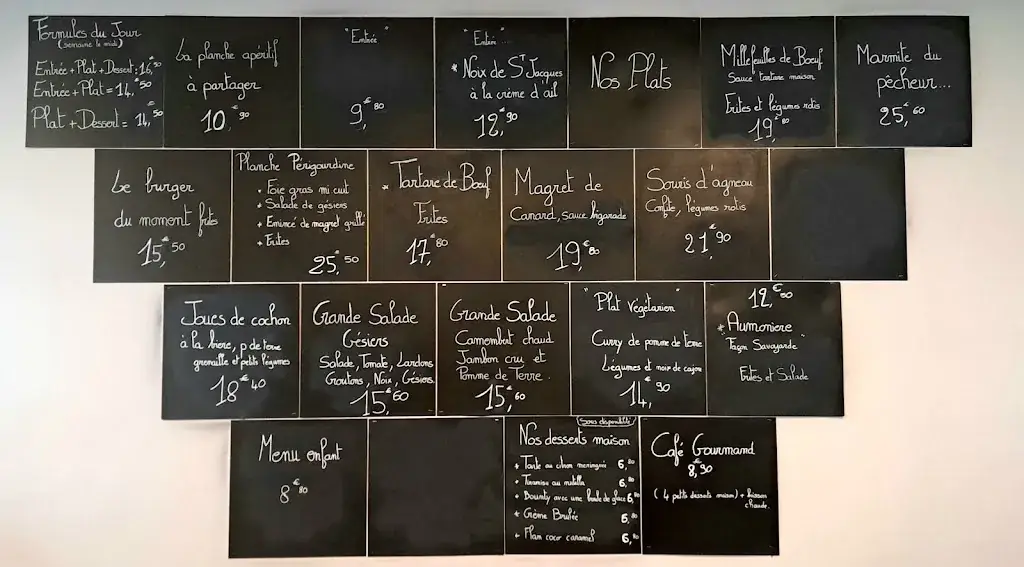 Formules du Jour
(semaine le midi)
Entrée + Plat + Dessert : 16,€50
Entrée + Plat = 14,€50
Plat + Dessert = 14,€50
La planche apéritif
à partager
10,€90
"Entrée"
9,€80
"Entrée"...
* Noix de St Jacques
à la crème d'ail
12,€90
Nos Plats
Millefeuilles de Bœuf
Sauce tartare maison
Frites et légumes rotis
19,€80
Marmite du
pêcheur...
25,€60
Le burger
du moment frites
15,€50
Planche Périgourdine
• Foie gras mi cuit
• Salade de gésiers
• Emincé de magret grillé
• Frites
25,€50
* Tartare de Bœuf
Frites
17,€80
Magret de
Canard, sauce bigarade
19,€80
Souris d'agneau
Confite, légumes rotis
21,€90
Joues de cochon
à la bière, p de terre
grenaille et petits légumes
18,€40
Grande Salade
Gésiers
Salade, Tomate, Lardons
Croutons, Noix, Gésiers
15,€60
Grande Salade
Camembert chaud
Jambon cru et
Pomme de Terre.
15,€60
"Plat Végétarien"
Curry de pomme de terre
Légumes et noix de cajou
14,€90
12,€50
* Aumoniere
"Façon Savoyarde"
Frites et Salade
Menu enfant
8,€80
(Sous disponibilité)
Nos desserts maison
* Tarte au citron meringuée 6,80
* Tiramisu au nutella 6,80
* Bounty avec une boule de glace 6,80
* Crème Brulée 6,80
* Flan coco caramel 6,80
Café Gourmand
8,€90
(4 petits desserts maison) + boisson
chaude.